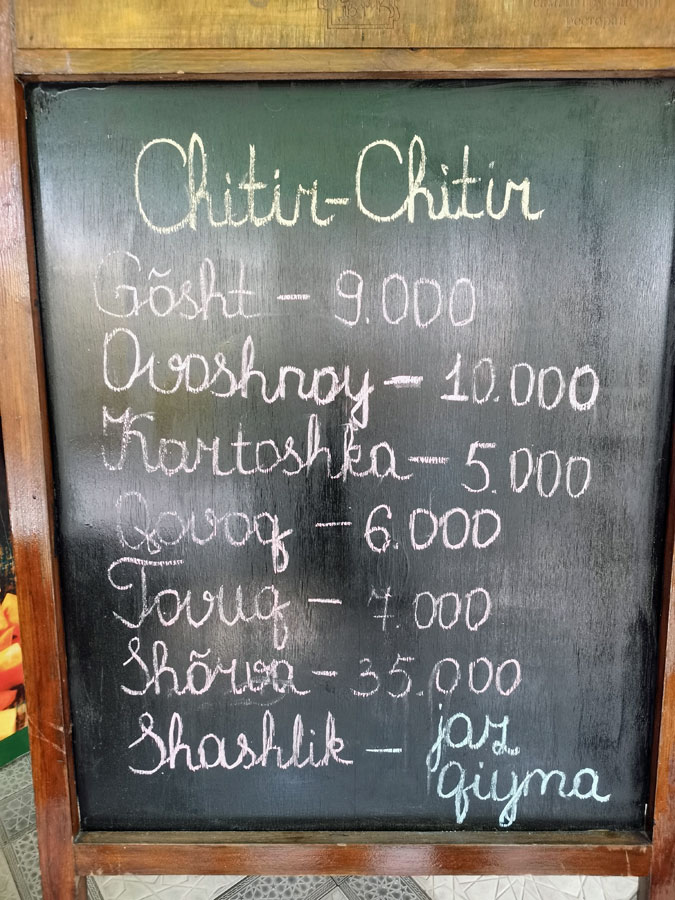 Chitir-Chitir
Gõsht - 9.000
Ovoshnoy - 10.000
Kartoshka - 5.000
Qovoq - 6.000
Tovuq - 7.000
Shõrva - 35.000
Shashlik - jaz
qiyma